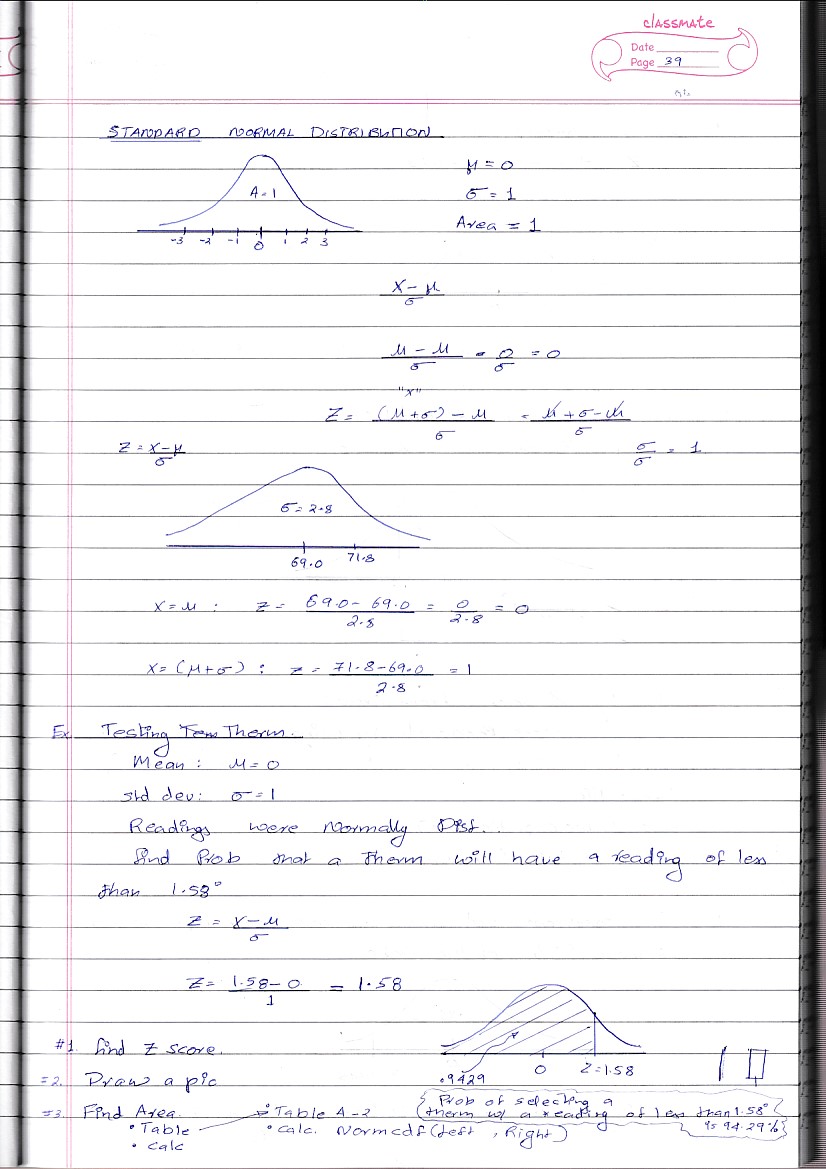 classmate
Date
Page 39
STANDARD NORMAL DISTRIBUTION
A=1
-3 -2 -1 0 1 2 3
μ = 0
σ = 1
Area = 1
X-μ / σ
μ-μ / σ = 0/σ = 0
"x"
Z = (μ+σ)-μ / σ = μ+σ-μ / σ
Z = x-μ / σ
σ/σ = 1
σ = 2.8
69.0 71.8
X=μ : Z = 69.0-69.0 / 2.8 = 0 / 2.8 = 0
X=(μ+σ) : Z = 71.8-69.0 / 2.8 = 1
Ex. Testing Therm.
Mean : μ=0
std dev: σ=1
Readings were Normally Dist.
find Prob that a Therm will have a reading of less
than 1.58°
Z = X-μ / σ
Z = 1.58-0 / 1 = 1.58
#1. find Z score.
.9429 0 Z=1.58
=2. Draw a pic
=3. Find Area.
• Table
• calc
• Table A-2
• calc. Normcdf(Left, Right)
Prob of selecting a
therm w/ a reading of less than 1.58°
is 94.29%